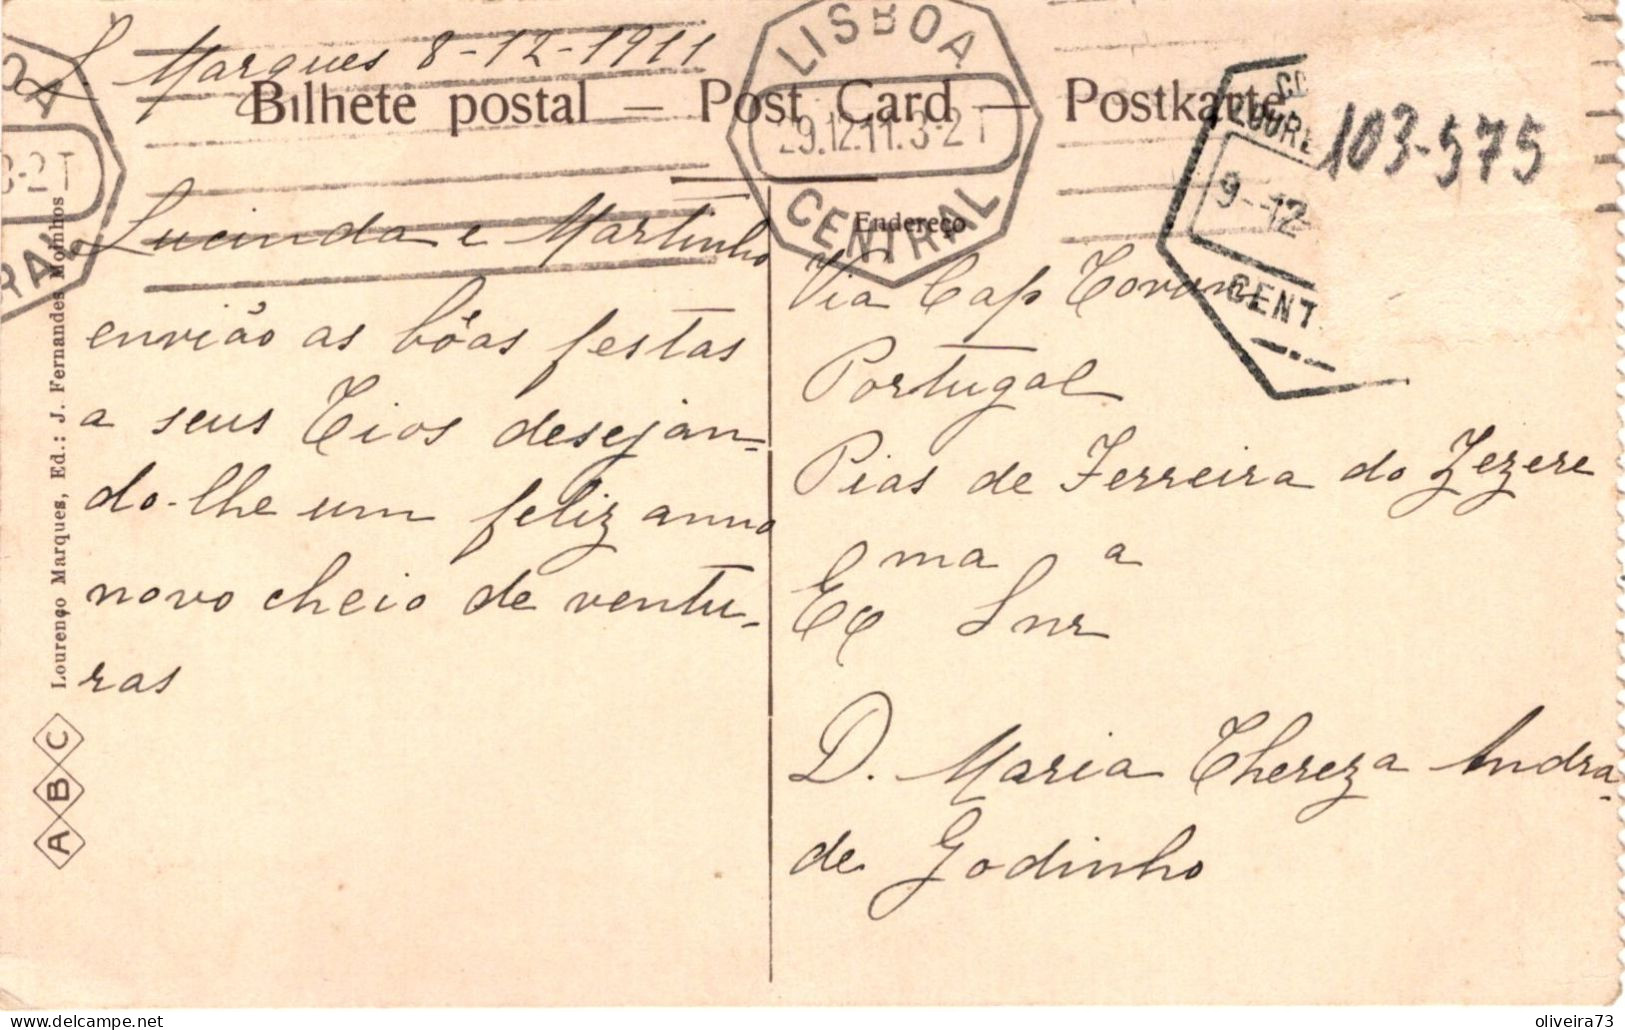 L. Marques 8-12-1911
Bilhete postal — Post Card — Postkarte
LISBOA
29.12.11.3-2T
CENTRAL
OA
3-2T
RAL
LOURE
9-12-
CENT
103-575
Lucinda e Martinho
envião as bôas festas
a seus Tios desejan-
do-lhe um feliz anno
novo cheio de ventu-
ras
Endereço
Via Cap Town
Portugal
Pias de Ferreira do Zezere
Exma Snra
D. Maria Thereza Andra-
de Godinho
Lourenço Marques, Ed.: J. Fernandes Moinhos
A B C
oliveira73